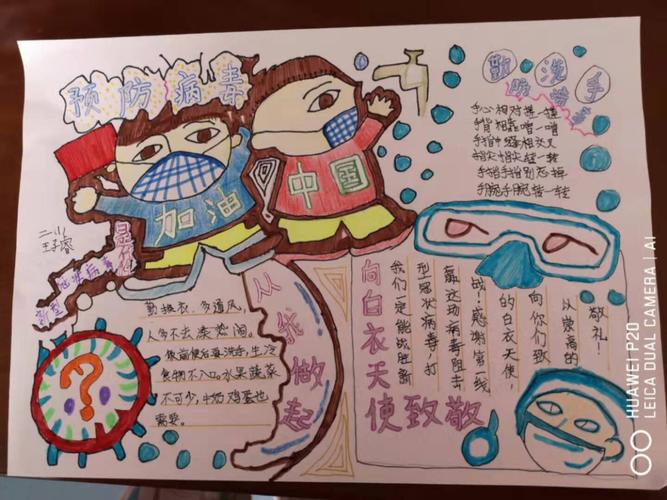 预防病毒
加油
中国
勤洗手
手心相对搓一搓
手背相靠
手指中缝相交叉
指尖指尖
手腕手腕转一转
二、11
新型冠状病毒
是什么
勤换衣、多通风,
人多不去凑热闹。
饭前便后要洗手,生冷
食物不入口。水果蔬菜
不可少,牛奶鸡蛋也
需要。
从我做起
向白衣天使致敬
我们一定能战胜新
型冠状病毒!打
赢这场病毒阻击
战!感谢客线
的白衣天使,
向你们致
以崇高的
敬礼!
HUAWEI P20
LEICA DUAL CAMERA | AI